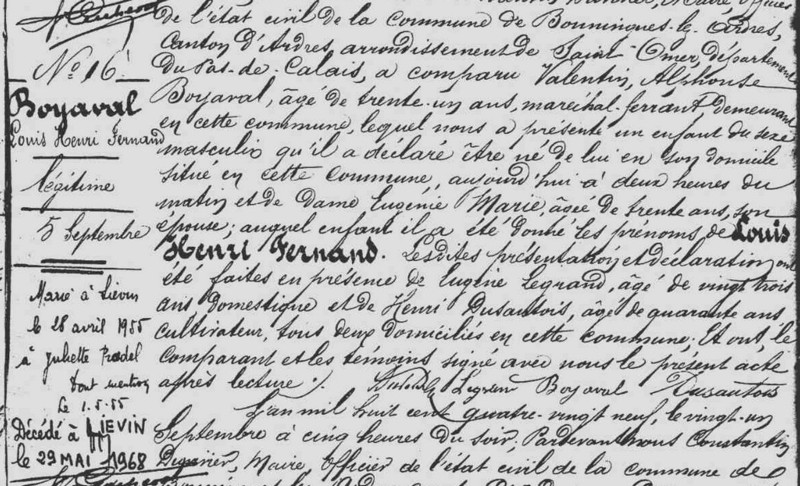 de l'état civil de la commune de Bonningues-les-Ardres,
Canton d'Ardres, arrondissement de Saint-Omer, département
du Pas-de-Calais, a comparu Valentin, Alphonse
Boyaval, âgé de trente-un ans, maréchal-ferrant, demeurant
en cette commune, lequel nous a présenté un enfant du sexe
masculin qu'il a déclaré être né de lui en son domicile
situé en cette commune, aujourd'hui à deux heures du
matin et de Dame Eugénie Marie, âgée de trente ans, son
épouse; auquel enfant il a été donné les prénoms de Louis
Henri Fernand. Lesdites présentation et déclaration ont
été faites en présence de Eugène Legrand, âgé de vingt trois
ans domestique et de Henri Dusautois, âgé de quarante ans
cultivateur, tous deux domiciliés en cette commune; Et ont, le
comparant et les témoins signé avec nous le présent acte
après lecture ./. Legran Boyaval Dusautois
L'an mil huit cent quatre-vingt neuf, le vingt-un
Septembre à cinq heures du soir, Pardevant nous Constantin
Maire, officier de l'état civil de la commune de
No 16
Boyaval
Louis Henri Fernand
légitime
5 Septembre
Marié à Liévin
le 28 avril 1955
à Juliette
dont mention
le 1.5.55
Décédé à LIEVIN
le 29 MAI 1968